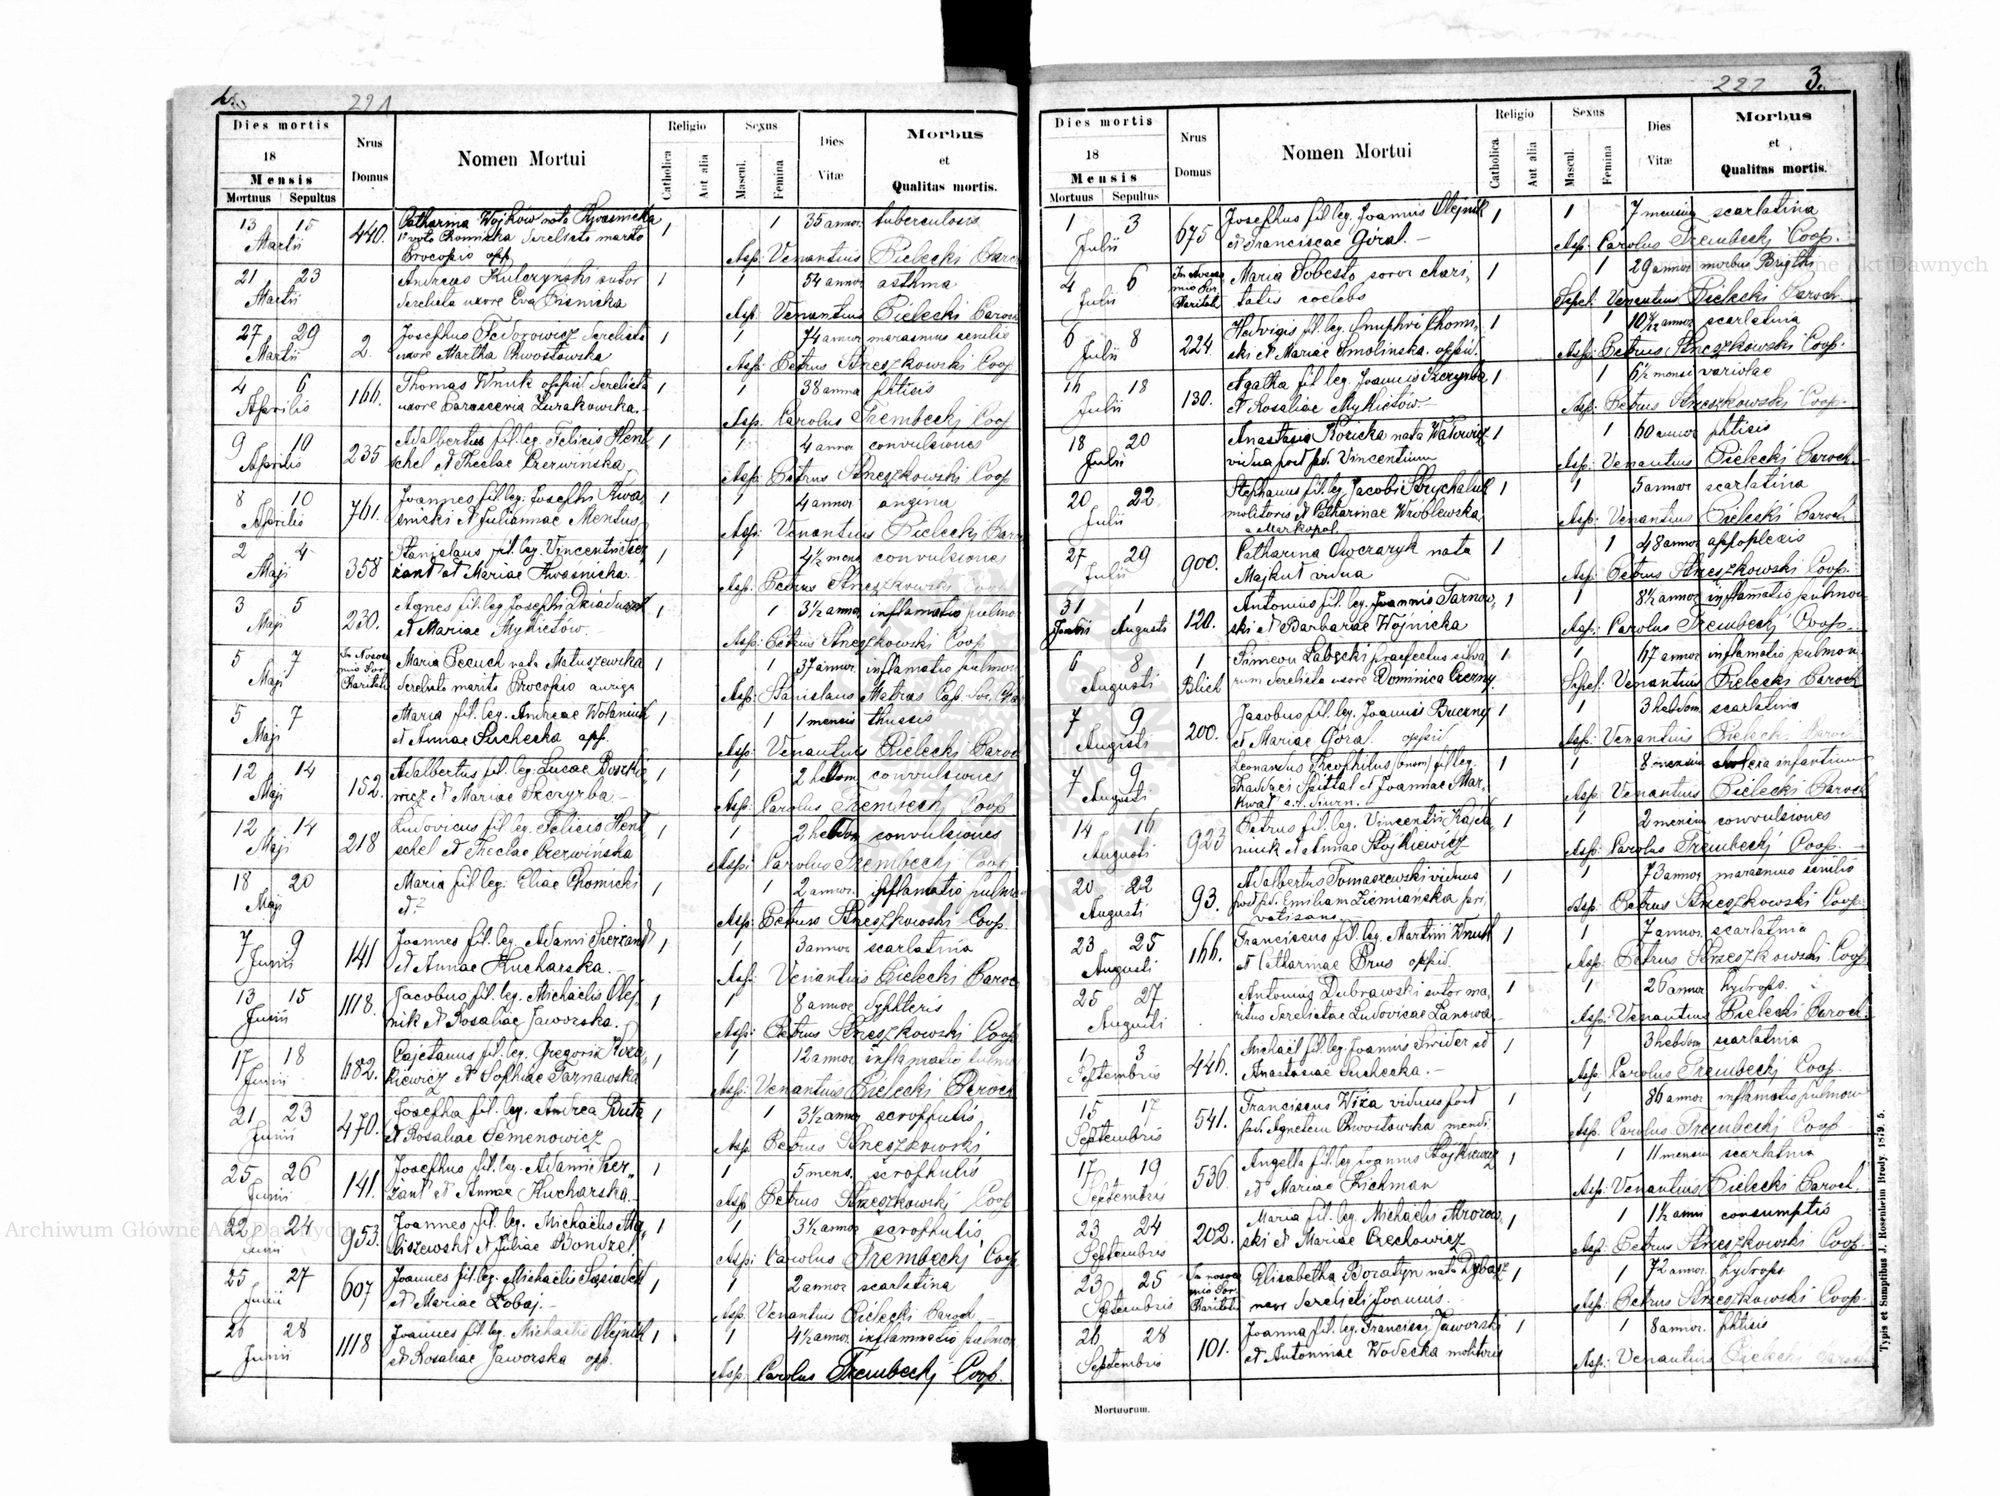 2.
221
Dies mortis
18
Mensis
Mortuus Sepultus
Nrus
Domus
Nomen Mortui
Religio
Catholica
Aut alia
Sexus
Mascul.
Femina
Dies
Vitæ
Morbus
et
Qualitas mortis.
13 15 Martii 440. Catharina Wojkow nata Kwasnicka 1 1 35 annor. tuberculosis
derelicto marito
Procopio opp. Asp: Venantius Pielecki Paroch
21 23 Martii Andreas Kulczyński sutor 1 1 54 annor asthma
derelicta uxore Eva Pisnicka Asp: Venantius Pielecki Paroch
27 29 Martii 2. Josephus Fedorowicz derelicta 1 1 74 annor marasmus senilis
uxore Martha Chwostowska Asp: Petrus Streszkowski Coop.
4 6 Aprilis 166. Thomas Wnuk oppid. derelicta 1 1 38 annor phtisis
uxore Parascevia Zurakowska. Asp: Carolus Trembecki Coop
9 10 Aprilis 235 Adalbertus fil. leg. Felicis Hent 1 1 4 annor convulsiones
schel et Theclae Czerwińska Asp: Petrus Streszkowski Coop
8 10 Aprilis 761. Joannes fil. leg. Josephi Kwa 1 1 4 annor angina
śnicki et Juliannae Mentus Asp: Venantius Pielecki Paroch
2 4 Maji 358 Stanislaus fil. leg. Vincentii Sier 1 1 4½ mens convulsiones
żant et Mariae Kwasnicka Asp. Petrus Streszkowski Coop
3 5 Maji 230. Agnes fil. leg. Josephi 1 1 3½ annor inflamatio pulmo
et Mariae Mykietów. Asp: Petrus Streszkowski Coop
5 7 Maji In Nosoco mio Sor. Charitat. Maria Pecuch nata Matuszewska 1 1 37 annor inflamatio pulmon
derelicto marito Procopio auriga Asp: Stanislaus Matras
5 7 Maji Maria fil. leg. Andreae Wolaniuk 1 1 1 mensis thussis
et Annae Suchecka opp. Asp: Venantius Pielecki Paroch
12 14 Maji 152. Adalbertus fil. leg. Lucae 1 1 2 hebdom convulsiones
wicz et Mariae Szczyrba Asp: Carolus Trembecki Coop
12 14 Maji 218 Ludovicus fil. leg. Felicis Hent 1 1 2 hebdom convulsiones
schel et Theclae Czerwińska Asp: Carolus Trembecki Coop
18 20 Maji Maria fil. leg. Eliae Chomicki 1 1 2 annor. inflamatio pulmo
et ? Asp: Petrus Streszkowski Coop.
7 9 Junii 141 Joannes fil. leg. Adami Sierżant 1 1 3 annor scarlatina
et Annae Kucharska. Asp: Venantius Pielecki Paroch
13 15 Junii 1118. Jacobus fil. leg. Michaelis Olej 1 1 8 annor dyphteris
nik et Rosaliae Jaworska. Asp: Petrus Streszkowski Coop
17 18 Junii 682. Cajetanus fil. leg. Gregorii 1 1 12 annor inflamatio pulmo
kiewicz et Sophiae Tarnawska Asp: Venantius Pielecki Paroch
21 23 Junii 470. Josepha fil. leg. Andrea Buta 1 1 3½ annor scrophulis
et Rosaliae Semenowicz Asp. Petrus Streszkowski
25 26 Junii 141. Josephus fil. leg. Adami Sier 1 1 5 mens. scrophulis
żant et Annae Kucharska Asp: Petrus Streszkowski Coop
22 24 Junii 953. Joannes fil. leg. Michaelis Ma 1 1 3½ annor scrophulis
liszewski et Juliae Bondzel. Asp: Carolus Trembecki Coop
25 27 Junii 607 Joannes fil. leg. Michaelis 1 1 2 annor scarlatina
et Mariae Lobaj. Asp: Venantius Pielecki Paroch
26 28 Junii 1118 Joannes fil. leg. Michaelis Olejnik 1 1 4½ annor inflammatio pulmon
et Rosaliae Jaworska opp. Asp: Carolus Trembecki Coop.
222
3.
Dies mortis
18
Mensis
Mortuus Sepultus
Nrus
Domus
Nomen Mortui
Religio
Catholica.
Aut alia
Sexus
Mascul.
Femina
Dies
Vitæ
Morbus
et
Qualitas mortis.
1 3 Julii 675 Josephus fil. leg. Joannis Olejnik 1 1 7 mensium scarlatina
et Franciscae Góral. Asp: Carolus Trembecki Coop.
4 6 Julii In Nosoco mio Sor. Charitat. Maria Sobesto soror chari 1 1 29 annor morbus Brigthi
tatis coelebs Sepel: Venantius Pielecki Paroch
6 8 Julii 224. Hedvigis fil. leg. Onuphri Chomi 1 1 10 annor scarlatina
ski et Mariae Smolinska oppid. Asp: Petrus Streszkowski Coop.
16 18 Julii 130. Agatha fil. leg. Joannis Szczyrba 1 1 6½ mensi variolae
et Rosaliae Mykietów. Asp: Petrus Streszkowski Coop.
18 20 Julii Anastasia Kosicka nata Watowicz 1 1 60 annor phtisis
vidua post pd. Vincentium Asp: Venantius Pielecki Paroch.
20 22 Julii Stephanus fil. leg. Jacobi Strychaluk 1 1 5 annor scarlatina
molitoris et Catharinae Wróblewska
a Markopol Asp: Venantius Pielecki Paroch
27 29 Julii 900. Catharina Owczaryk nata 1 1 48 annor appoplexis
Majkut vidua Asp: Petrus Streszkowski Coop.
31 1 Julii Augusti 120. Antonius fil. leg. Joannis Tarnow 1 1 8½ annor inflamatio pulmon
ski et Barbarae Wojnicka Asp: Carolus Trembecki Coop.
6 8 Augusti 1 Blich Simeon Labęcki praefectus silva 1 1 67 annor inflamatio pulmon
rum derelicta uxore Dominica Czerny. Sepel: Venantius Pielecki Paroch
7 9 Augusti 200. Jacobus fil. leg. Joannis Buczny 1 1 3 hebdom. scarlatina
et Mariae Góral oppid. Asp: Venantius Pielecki Paroch
7 9 Augusti Leonardus Theophilus (bnom) fil. leg. 1 1 8 mensiu infantium
Thaddaei Spittal et Joannae Mar
kwat Asp: Venantius Pielecki Paroch
14 16 Augusti 923 Petrus fil. leg. Vincentii Kajeta 1 1 2 mensiu convulsiones
niuk et Annae Stojkiewicz Asp: Carolus Trembecki Coop.
20 22 Augusti 93. Adalbertus Tomaszewski viduus 1 1 73 annor marasmus senilis
post pd. Emiliam Ziemiańska pri
vatisans Asp: Petrus Streszkowski Coop.
23 25 Augusti 166. Franciscus fil. leg. Martini Wnuk 1 1 7 annor. scarlatina
et Catharinae Prus oppid. Asp: Petrus Streszkowski Coop
25 27 Augusti Antonius Dubrawski sutor ma 1 1 26 annor hydrops.
ritus derelictae Ludovicae Lanowa. Asp: Venantius Pielecki Paroch.
1 3 Septembris 446. Michael fil. leg. Joannis Swider et 1 1 3 hebdom scarlatina
Anastasiae Suchecka. Asp: Carolus Trembecki Coop.
15 17 Septembris 541. Franciscus Wiza viduus post 1 1 86 annor inflamatio pulmon
pd. Agnetem Chwostowska mendi Asp. Carolus Trembecki Coop
17 19 Septembris 536. Angella fil. leg. Joannis Stojkiewicz 1 1 11 mensiu scarlatina
et Mariae Kichman Asp: Venantius Pielecki Paroch.
23 24 Septembris 202. Maria fil. leg. Michaelis Mrozow 1 1 1½ anni consumptis
ski et Mariae Orechowicz Asp: Petrus Streszkowski Coop.
23 25 Septembris In nosoco mio Sor. Charitat. Elisabetha Boratyn nata Dybasz 1 1 72 annor. hydrops
derelicti Joannis. Asp: Petrus Streszkowski Coop.
26 28 Septembris 101. Joanna fil. leg. Francisci Jaworski 1 1 8 annor. phtisis
et Antoninae Wodecka molitoris Asp: Venantius Pielecki Paroch
Mortuorum.
Typis et Sumptibus J. Rosenheim Brody. 1879. 5.
Archiwum Główne Akt Dawnych
Archiwum Główne Akt Dawnych